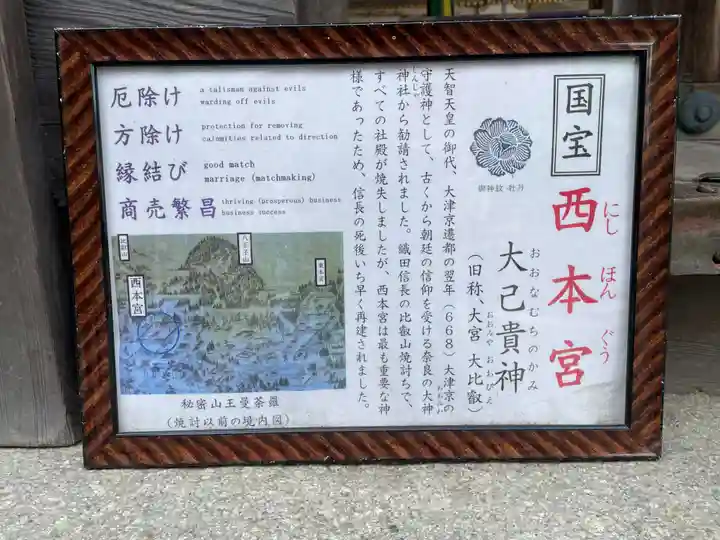 国宝
西本宮
にし ほん ぐう
御神紋・牡丹
大己貴神
おおなむちのかみ
(旧称、大宮 大比叡)
おおみや おおびえ
天智天皇の御代、大津京遷都の翌年(668)大津京の
守護神として、古くから朝廷の信仰を受ける奈良の大神
神社から勧請されました。織田信長の比叡山焼討ちで、
すべての社殿が焼失しましたが、西本宮は最も重要な神
様であったため、信長の死後いち早く再建されました。
厄除け
a talisman against evils
warding off evils
方除け
protection for removing
calamities related to direction
縁結び
good match
marriage (matchmaking)
商売繁昌
thriving (prosperous) business
business success
比叡山
八王子山
西本宮
秘密山王曼荼羅
(焼討以前の境内図)